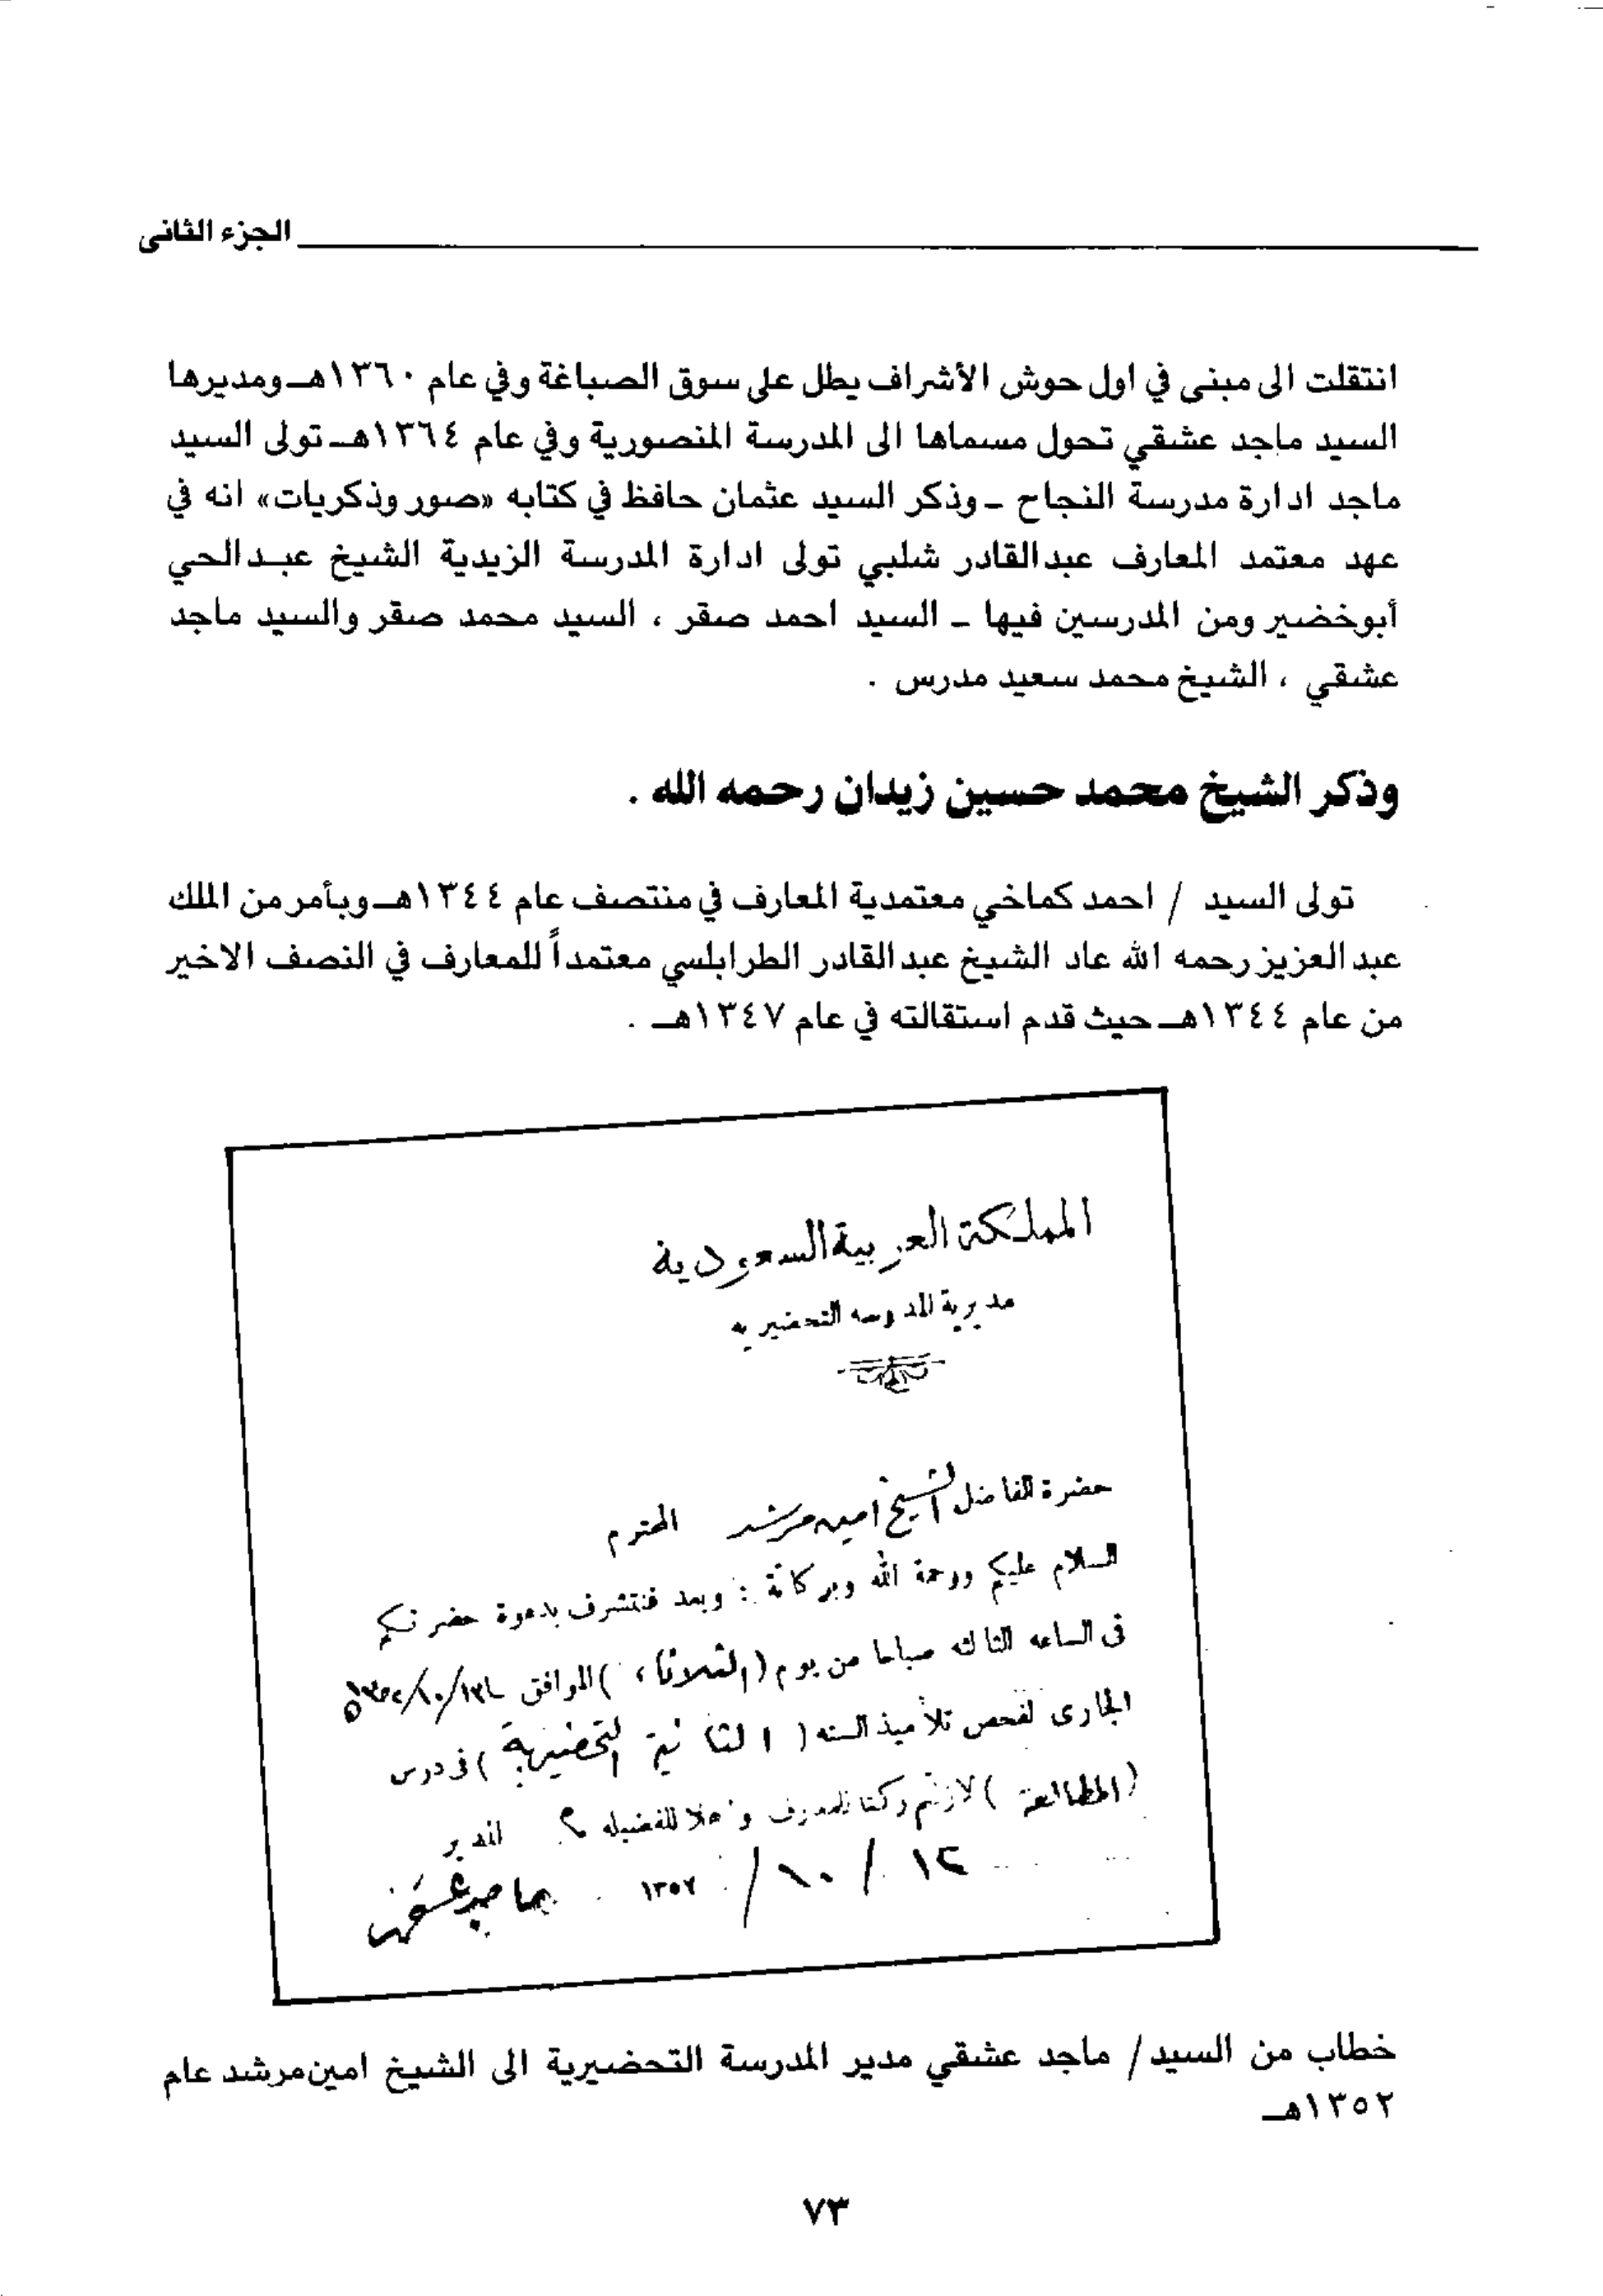 الجزء الثانى
انتقلت الى مبنى في اول حوش الأشراف يطل على سوق الصباغة وفي عام ١٣٦٠هـ ومديرها
السيد ماجد عشقي تحول مسماها الى المدرسة المنصورية وفي عام ١٣٦٤هـ تولى السيد
ماجد ادارة مدرسة النجاح - وذكر السيد عثمان حافظ في كتابه «صور وذكريات» انه في
عهد معتمد المعارف عبدالقادر شلبي تولى ادارة المدرسة الزيدية الشيخ عبدالحي
أبوخضير ومن المدرسين فيها - السيد احمد صقر ، السيد محمد صقر والسيد ماجد
عشقي ، الشيخ محمد سعيد مدرس .
وذكر الشيخ محمد حسين زيدان رحمه الله .
تولى السيد / احمد كماخي معتمدية المعارف في منتصف عام ١٣٤٤هـ وبأمر من الملك
عبد العزيز رحمه الله عاد الشيخ عبد القادر الطرابلسي معتمداً للمعارف في النصف الاخير
من عام ١٣٤٤هـ حيث قدم استقالته في عام ١٣٤٧هـ .
المملكة العربية السعودية
مديرية المدرسه التحضيريه
حضرة الفاضل الشيخ امين مرشد المحترم
السلام عليكم ورحمة الله وبركاتة : وبعد فنتشرف بدعوة حضرتكم
فى الساعه الثالثه صباحا من يوم (الثلاثاء) الموافق
الجارى لفحص تلأميذ السنه ( الثانية التحضيرية ) فى درس
(المطالعة ) لازلتم ركنا للمعارف واهلا للفضيله المدير
١٢ / ١٠ / ١٣٥٢ ماجد عشقي
خطاب من السيد / ماجد عشقي مدير المدرسة التحضيرية الى الشيخ امين مرشد عام
١٣٥٢هـ
٧٣